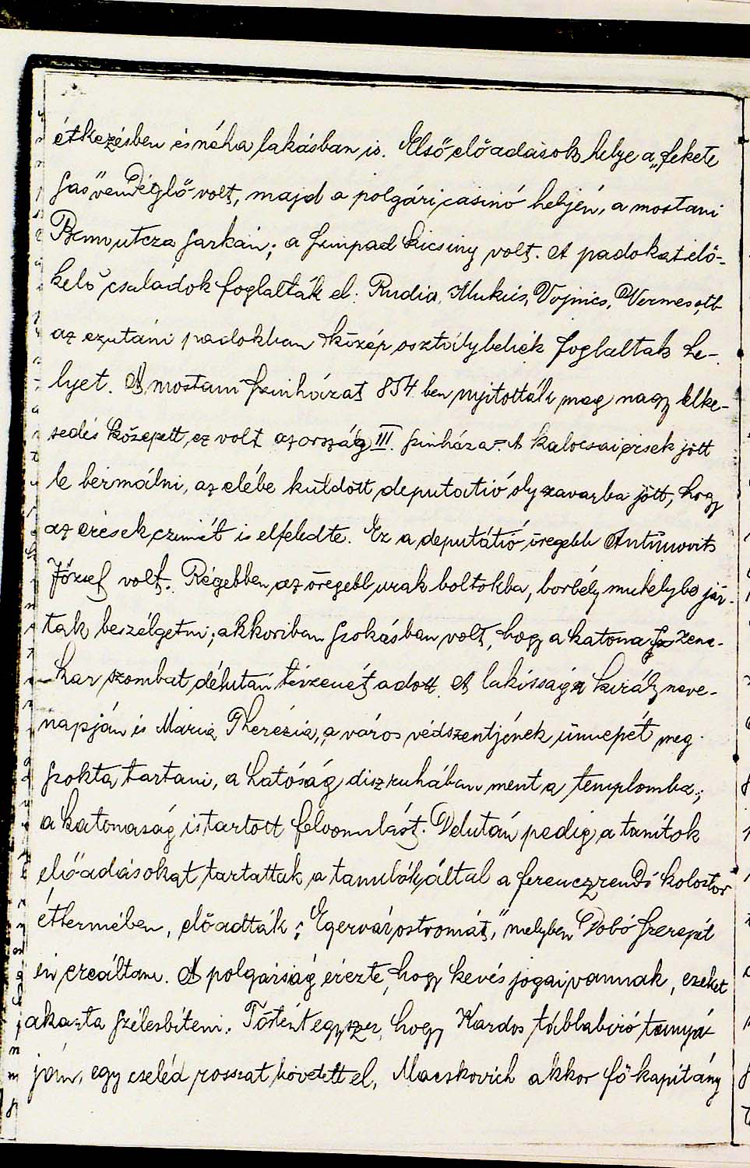 étkezésben és néha lakásban is. Első előadások helye a „fekete
sas" vendéglő volt, majd a polgári casinó helyén, a mostani
Bem utcza sarkán; a szinpad kicsiny volt. A padokat elő-
kelő családok foglalták el: Rudia, Mukits, Vojnics, Vermes, stb
az ezutáni padokban közép osztálybeliek foglaltak he-
lyet. A mostani szinházat 854 ben nyitották meg nagy lelke-
sedés közepett, ez volt az ország III. szinháza. A kalocsai érsek jött
le bérmálni, az elébe küldött deputatió oly zavarba jött, hogy
az érsek czimét is elfeledte. Ez a deputátió öregebb Antunovits
József volt. Régebben az öregebb urak boltokba, borbély mühelybe jár-
tak beszélgetni; akkoriban szokásban volt, hogy a katona zene-
kar szombat délután térzenét adott. A lakosság a király neve-
napján és Mária Therézia, a város védszentjének ünnepét meg
szokta tartani, a hatóság diszruhában ment a templomba;
a katonaság is tartott felvonulást. Délután pedig a tanitók
előadásokat tartattak a tanulók által a ferenczrendi kolostor
éttermében, előadták: „Egervár ostromát," melyben Dobó szerepét
én creáltam. A polgárság érezte, hogy kevés jogai vannak, ezeket
akarta szélesbiteni. Történt egyszer, hogy Kardos táblabiró tanyá-
ján, egy cseléd rosszat követett el, Macskovich akkor fő kapitány